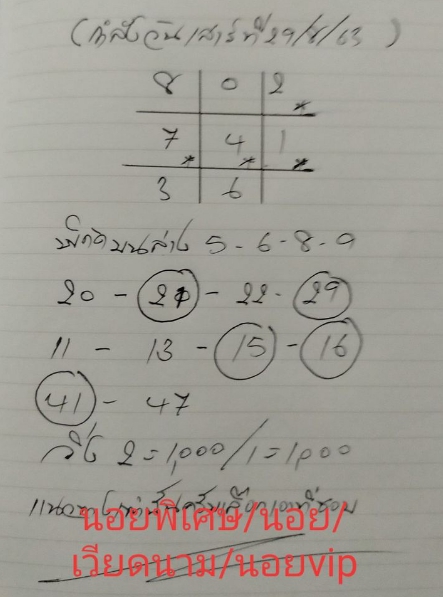 วันเสาร์ที่ 29/8/63 )
8 0 2
7 4 1
3 6
บนล่าง 5-6-8-9
20 - 21 - 22 - 29
11 - 13 - 15 - 16
41 - 47
วิ่ง 2=1,000/1=1,000
นอยพิเศษ/นอย/
เวียดนาม/นอยvip